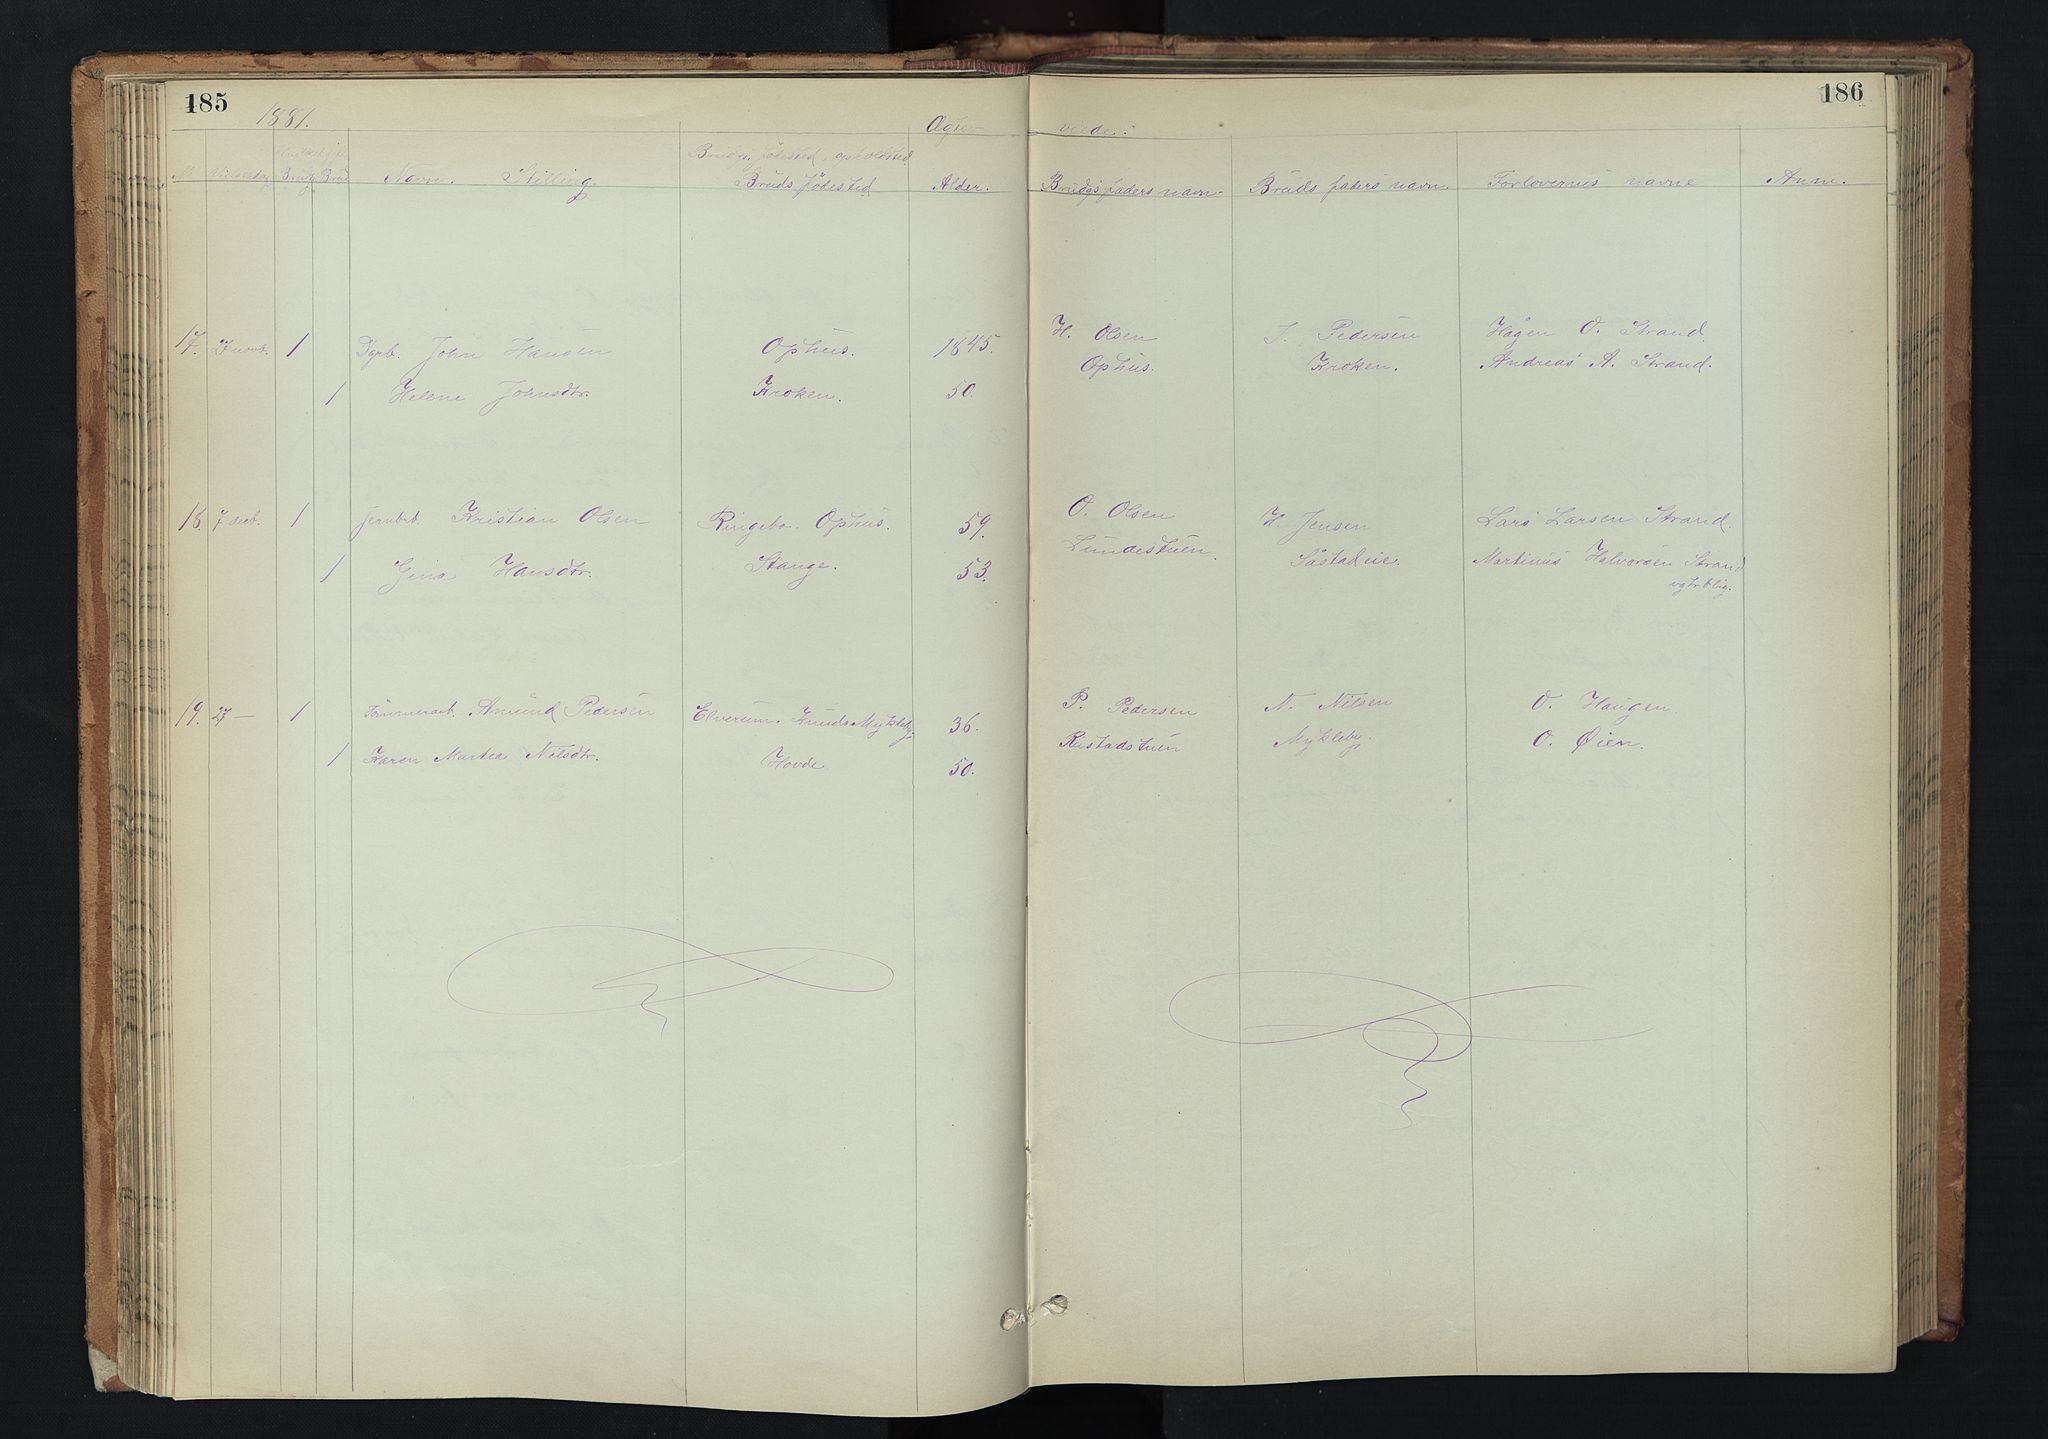 185
186
1881.
Ægte-
viede.
№ Vielsesdag Brudg. Brud Navn. Stilling. Brudgs. fødested, opholdsted Bruds fødested Alder. Brudgs faders navn. Bruds faders navn Forlovernes navne Anm.
17. 27 novb. 1 Dgrb. John Hansen Ophus. 1845. H. Olsen J. Pedersen Hågen O. Strand.
Ophus. Kroken. Andreas A. Strand.
1 Helene Johnsdtr. Kroken. 50.
18. 7 decb. 1 Jernbrb. Kristian Olsen Ringebo. Ophus. 59. O. Olsen H. Jensen Lars Larsen Strand.
Lundestuen. Såstadeie. Martinus Halvorsen Strand
1 Gina Hansdtr. Stange. 53.
19. 27 — 1 Tømmerarb. Amund Pedersen Elverum. Knuds Mykleby. 36. P. Pedersen N. Nilsen O. Haugen.
Rustadstuen Mykleby. O. Øien.
1 Karen Martea Nilsdtr. Hovde 50.